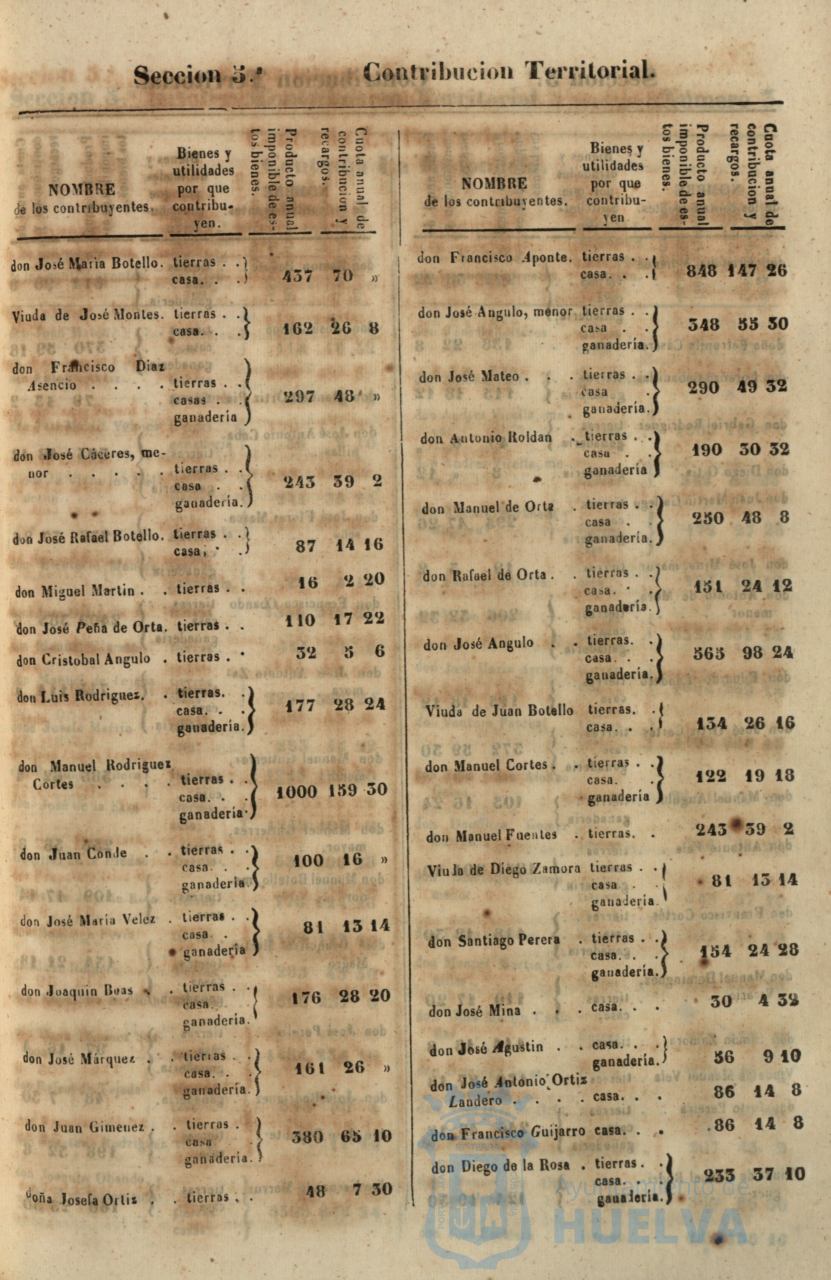 Seccion 5.ª Contribucion Territorial.
NOMBRE
de los contribuyentes.
Bienes y
utilidades
por que
contribu-
yen.
Producto anual
imponible de es-
tos bienes.
Cuota anual de
contribucion y
recargos.
don José Maria Botello. tierras . .
casa. . . 437 70 »
Viuda de José Montes. tierras . .
casa. . . 162 26 8
don Francisco Diaz
Asencio . . . . tierras . .
casas . . 297 48 »
ganadería
don José Cáceres, me-
nor . . . . . tierras . .
casa . . 243 39 2
ganadería.
don José Rafael Botello. tierras . .
casa, . . 87 14 16
don Miguel Martin . . tierras . . 16 2 20
don José Peña de Orta. tierras . . 110 17 22
don Cristobal Angulo . tierras . . 32 5 6
don Luis Rodriguez. . tierras. .
casa. . . 177 28 24
ganadería.
don Manuel Rodriguez
Cortes . . . . tierras . .
casa. . . 1000 159 30
ganadería.
don Juan Conde . . tierras . .
casa. . . 100 16 »
ganadería.
don José María Velez . tierras . .
casa . . 81 13 14
ganadería
don Joaquin Boas . . tierras . .
casa. . . 176 28 20
ganadería.
don José Márquez . . tierras . .
casa. . . 161 26 »
ganadería.
don Juan Gimenez . . tierras . .
casa . . 380 65 10
ganadería.
doña Josefa Ortiz . . tierras . . 48 7 30
NOMBRE
de los contribuyentes.
Bienes y
utilidades
por que
contribu-
yen
Producto anual
imponible de es-
tos bienes.
Cuota anual de
contribucion y
recargos.
don Francisco Aponte. tierras . .
casa. . . 848 147 26
don José Angulo, menor tierras . .
casa . . 348 55 30
ganadería.
don José Mateo . . . tierras . .
casa . . 290 49 32
ganadería.
don Antonio Roldan . tierras . .
casa . . 190 30 32
ganadería
don Manuel de Orta . tierras . .
casa . . 250 48 8
ganadería.
don Rafael de Orta . . tierras . .
casa. . . 151 24 12
ganadería.
don José Angulo . . tierras. .
casa. . . 565 98 24
ganadería.
Viuda de Juan Botello tierras. .
casa. . . 134 26 16
don Manuel Cortes . . tierras . .
casa. . . 122 19 18
ganadería
don Manuel Fuentes . tierras. . 243 39 2
Viuda de Diego Zamora tierras . .
casa . . 81 13 14
ganadería
don Santiago Perera . tierras . .
casa. . . 154 24 28
ganadería.
don José Mina . . . casa. . . 30 4 32
don José Agustin . . casa. . .
ganadería. 56 9 10
don José Antonio Ortiz
Landero . . . . casa. . . 86 14 8
don Francisco Guijarro casa. . . 86 14 8
don Diego de la Rosa . tierras. .
casa. . . 233 37 10
ganadería.
Ayuntamiento de
HUELVA